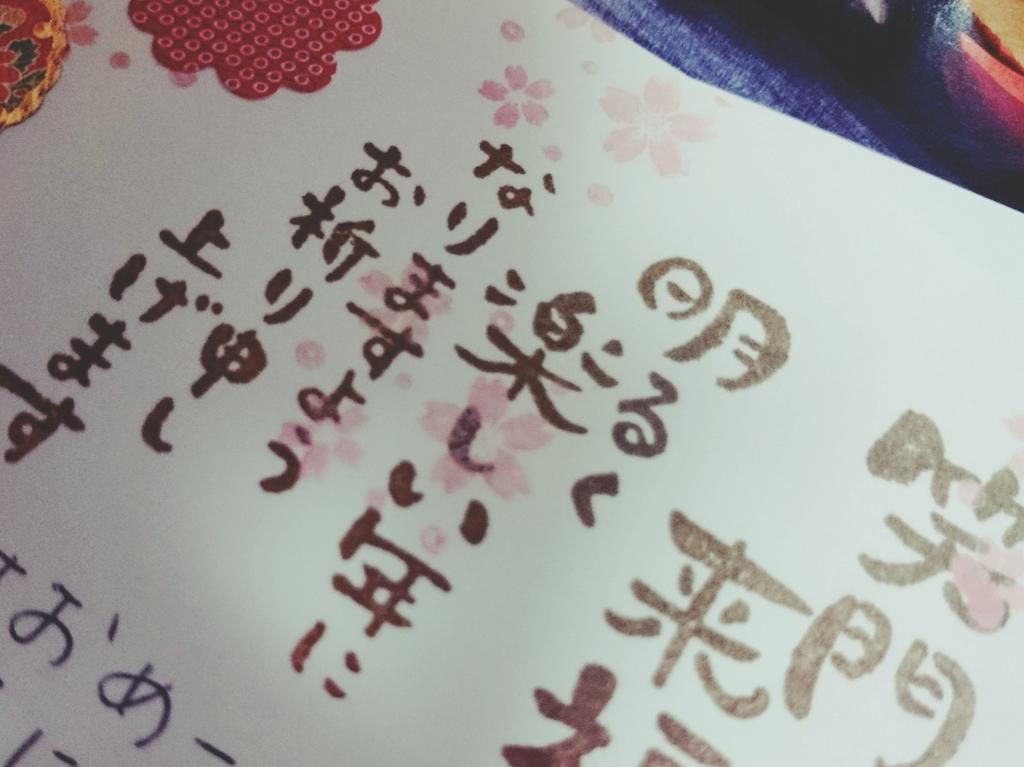 笑門
来
明るく
楽しい年に
なりますよう
お祈り申し
上げます
おめ